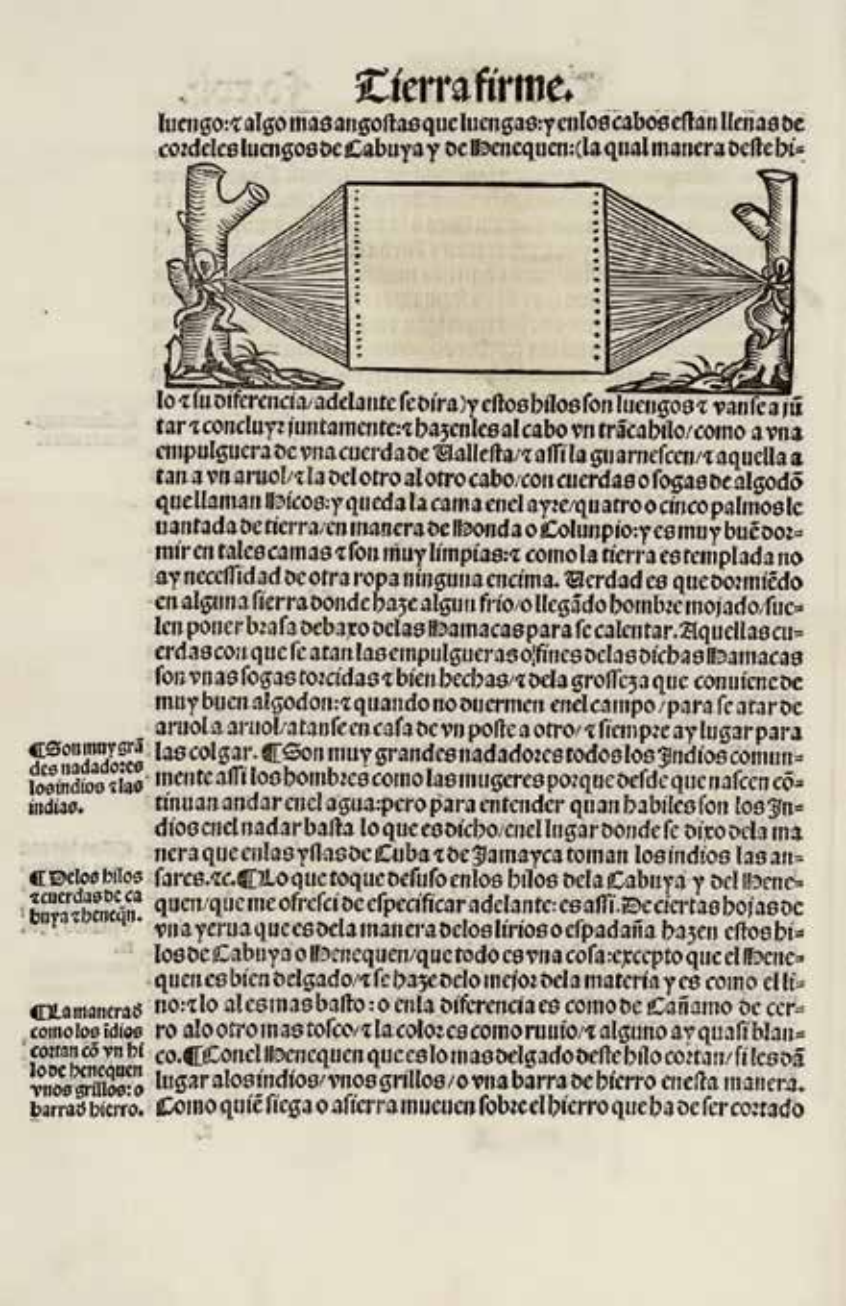 Tierra firme.
luengo:⁊ algo mas angostas que luengas:y enlos cabos estan llenas de
cordeles luengos de Cabuya y de Henequen:(la qual manera deste hi-
lo ⁊ su diferencia/adelante se dira) y estos hilos son luengos ⁊ vanse a jũ
tar ⁊ concluyr juntamente:⁊ hazenles al cabo vn trãcahilo/como a vna
empulguera de vna cuerda de Vallesta/⁊ assi la guarnescen/⁊ aquella a
tan a vn aruol/⁊ la del otro al otro cabo/con cuerdas o sogas de algodõ
que llaman Hicos:y queda la cama enel ayre/quatro o cinco palmos le
uantada de tierra/en manera de Honda o Colunpio:y es muy buẽ dor-
mir en tales camas ⁊ son muy limpias:⁊ como la tierra es templada no
ay necessidad de otra ropa ninguna encima. Verdad es que dormiẽdo
en alguna sierra donde haze algun frio/o llegãdo hombre mojado/sue-
len poner brasa debaxo delas Hamacas para se calentar. Aquellas cu-
erdas con que se atan las empulgueras o/fines delas dichas Hamacas
son vnas sogas torcidas ⁊ bien hechas/⁊ dela grosseza que conuiene de
muy buen algodon:⁊ quando no duermen enel campo/para se atar de
aruol a aruol/atanse en casa de vn poste a otro/⁊ siempre ay lugar para
las colgar. ¶ Son muy grandes nadadores todos los Indios comun-
mente assi los hombres como las mugeres porque desde que nascen cõ-
tinuan andar enel agua:pero para entender quan habiles son los In-
dios enel nadar basta lo que es dicho/enel lugar donde se dixo dela ma
nera que enlas yslas de Cuba ⁊ de Jamayca toman los indios las an-
sares.⁊c.¶ Lo que toque desuso enlos hilos dela Cabuya y del Hene-
quen/que me ofresci de especificar adelante:es assi. De ciertas hojas de
vna yerua que es dela manera delos lirios o espadaña hazen estos hi-
los de Cabuya o Henequen/que todo es vna cosa:excepto que el Hene-
quen es bien delgado/⁊ se haze delo mejor dela materia y es como el li-
no:⁊ lo al es mas basto:o enla diferencia es como de Cañamo de cer-
ro alo otro mas tosco/⁊ la color es como ruuio/⁊ alguno ay quasi blan-
co.¶ Con el Henequen que es lo mas delgado deste hilo cortan/si les dã
lugar alos indios/vnos grillos/o vna barra de hierro enesta manera.
Como quiẽ siega o asierra mueuen sobre el hierro que ha de ser cortado
¶ Son muy grã
des nadadores
los indios ⁊ las
indias.
¶ Delos hilos
⁊ cuerdas de ca
buya ⁊ heneq̃n.
¶ La manera đ
como los ĩdios
cortan cõ vn hi
lo de henequen
vnos grillos: o
barra đ hierro.